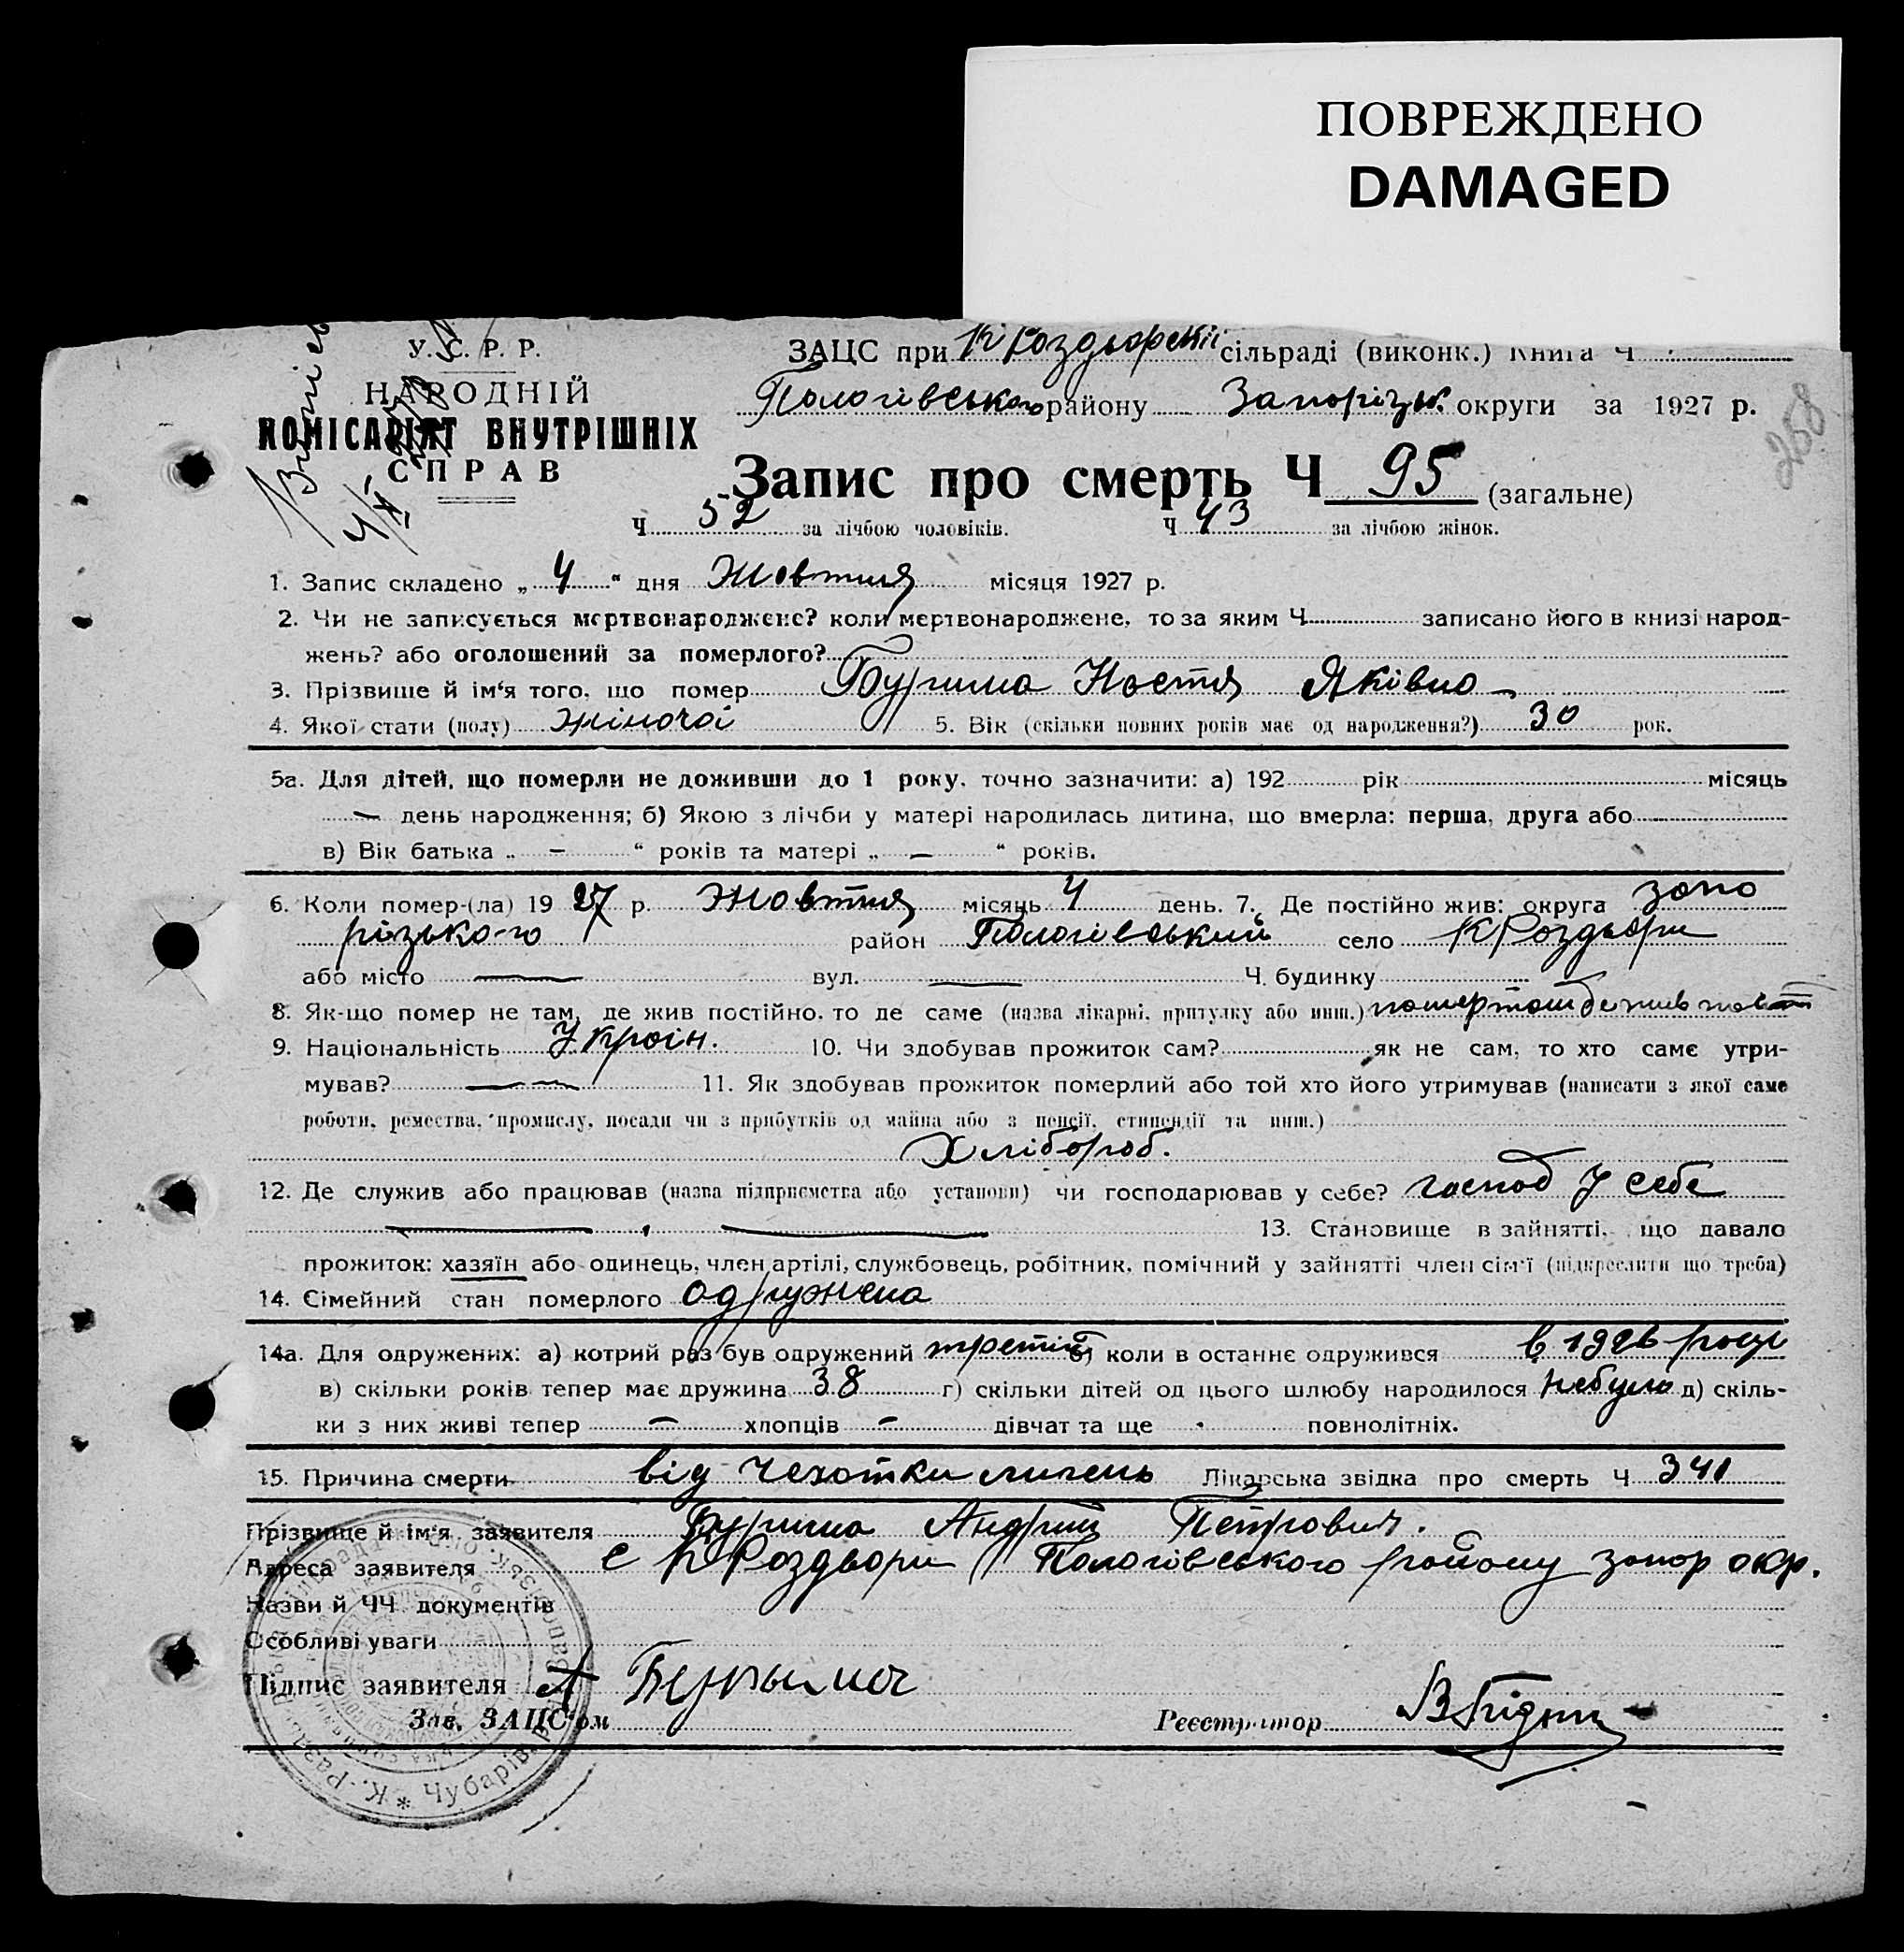 ПОВРЕЖДЕНО
DAMAGED
У. С. Р. Р.
НАРОДНІЙ
КОМІСАРІЯТ ВНУТРІШНІХ
СПРАВ
ЗАЦС при К Роздорській сільраді (виконк.) Книга Ч
Пологівського району Запорізьк. округи за 1927 р.
268
Запис про смерть Ч 95 (загальне)
Ч 52 за лічбою чоловіків. Ч 43 за лічбою жінок.
1. Запис складено „ 4 " дня Жовтня місяця 1927 р.
2. Чи не записується мертвонароджене? коли мертвонароджене, то за яким Ч записано його в книзі народ-
жень? або оголошений за померлого?
3. Прізвище й ім'я того, що помер Бурима Настя Яківна
4. Якої стати (полу) жіночої 5. Вік (скільки повних років має од народження?) 30 рок.
5а. Для дітей, що померли не доживши до 1 року, точно зазначити: а) 192 рік місяць
— день народження; б) Якою з лічби у матері народилась дитина, що вмерла: перша, друга або
в) Вік батька „ — " років та матері „ — " років.
6. Коли помер-(ла) 1927 р. Жовтня місяць 4 день. 7. Де постійно жив: округа запо
різького район Пологівський село К Роздори
або місто — вул. — Ч. будинку
8. Як-що помер не там, де жив постійно, то де саме (назва лікарні, притулку або инш.) помер там де жив
9. Національність Україн. 10. Чи здобував прожиток сам? як не сам, то хто саме утри-
мував? — 11. Як здобував прожиток померлий або той хто його утримував (написати з якої саме
роботи, ремества, промислу, посади чи з прибутків од майна або з пенсії, стипендії та инш.)
Хлібороб.
12. Де служив або працював (назва підприємства або установи) чи господарював у себе? господ у себе
13. Становище в зайнятті, що давало
прожиток: хазяїн або одинець, член артілі, службовець, робітник, помічний у зайнятті член сім'ї (підкреслити що треба)
14. Сімейний стан померлого одружена
14а. Для одружених: а) котрий раз був одружений третій б) коли в останнє одружився в 1926 році
в) скільки років тепер має дружина 38 г) скільки дітей од цього шлюбу народилося небуло д) скіль-
ки з них живі тепер — хлопців — дівчат та ще повнолітніх.
15. Причина смерти від чехотки лигень Лікарська звідка про смерть Ч 341
Прізвище й ім'я заявителя Бурима Андрій Петрович.
Адреса заявителя С К Роздори Пологівського району запор окр.
Назви й ЧЧ документів
Особливі уваги
Підпис заявителя А Бурыма
Зав. ЗАЦС'ом Реєстратор
К.-Разд. * Чубарів.